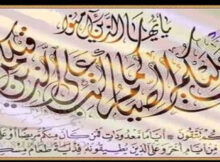 يا أيها الذين آمنوا
عليكم الصيام كما كتب على الذين من قبلكم
تتقون أياما معدودات فمن كان منكم مريضا أو
من أيام أخر وعلى الذين يطيقونه فدية طعام